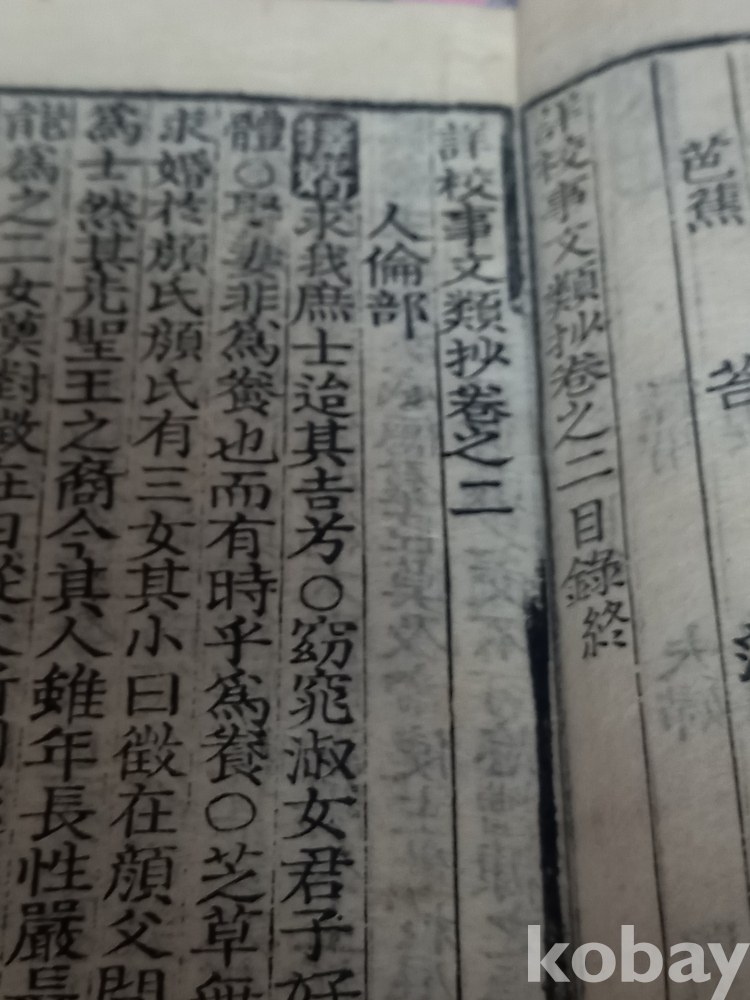 芭蕉 苔
詳校事文類抄卷之二目錄終
詳校事文類抄卷之二
人倫部
求我庶士迨其吉兮○窈窕淑女君子好
體○娶妻非爲養也而有時乎爲養○芝草無
求婚於顔氏顔氏有三女其小曰徵在顔父問
爲士然其先聖王之裔今其人雖年長性嚴
爲之二女莫對徵在曰從父所
kobay